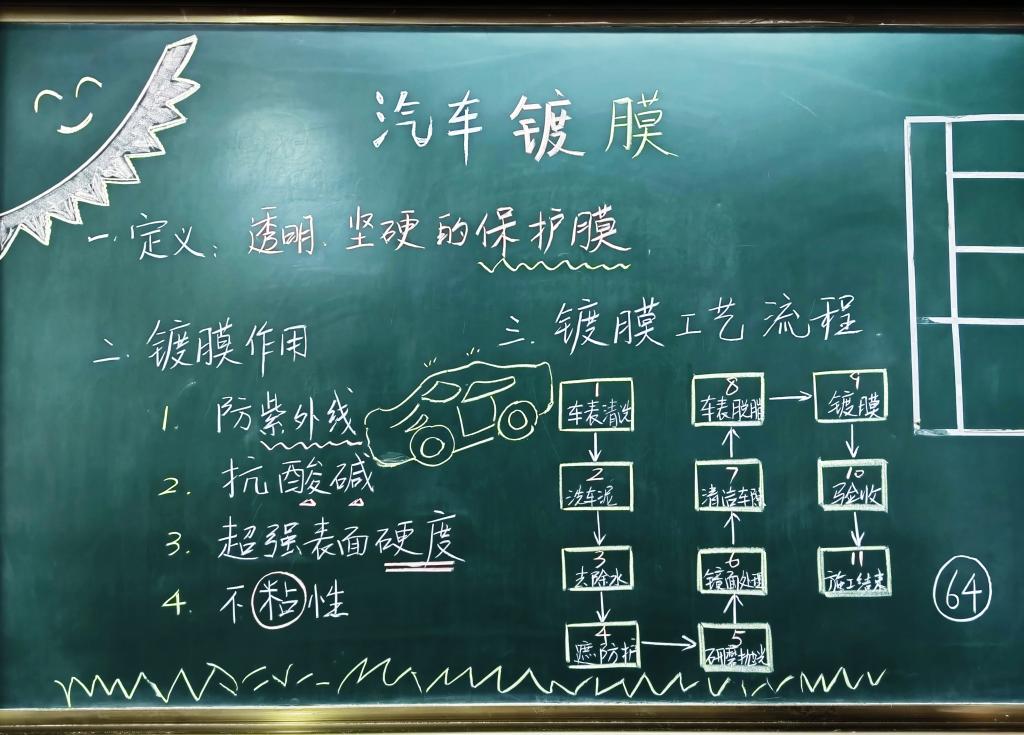 汽车镀膜
一.定义:透明、坚硬的保护膜
二.镀膜作用
1. 防紫外线
2. 抗酸碱
3. 超强表面硬度
4. 不粘性
三.镀膜工艺流程
1
车表清洗
2
洗车泥
3
去除水
4
遮.防护
5
研磨抛光
6
镜面处理
7
清洁车隙
8
车表脱脂
9
镀膜
10
验收
11
施工结束
64